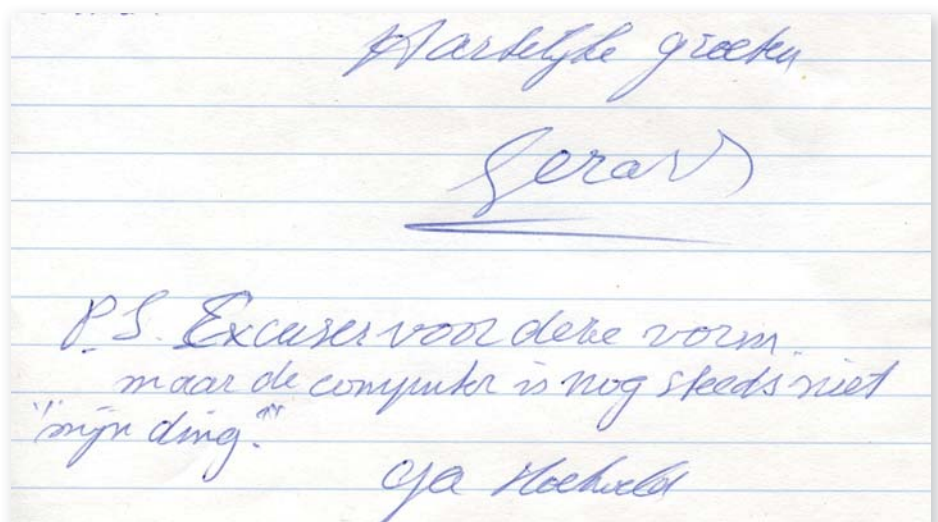 Hartelijke groeten
Gerard
P.S. Excuses voor deze vorm.
maar de computer is nog steeds niet
"mijn ding."